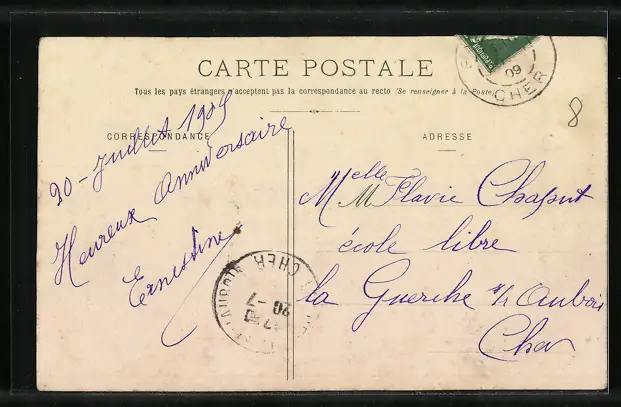 CARTE POSTALE
Tous les pays étrangers n'acceptent pas la correspondance au recto (Se renseigner à la Poste)
CORRESPONDANCE
ADRESSE
20 - Juillet 1909
Heureux Anniversaire
Ernestine
Melle Flavie Chaput
école libre
la Guerche s/l Aubois
Cher
09
CHER
CHER
20 -7
8